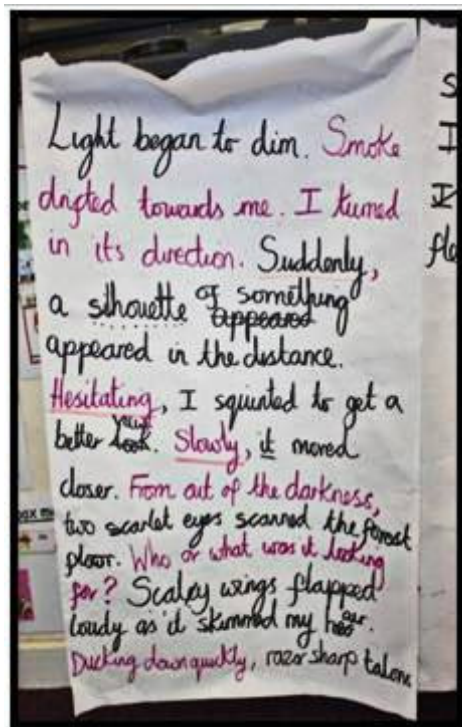 Light began to dim. Smoke
drifted towards me. I turned
in its direction. Suddenly,
a silhouette of something
appeared in the distance.
Hesitating, I squinted to get a
better view. Slowly, it moved
closer. From out of the darkness,
two scarlet eyes scanned the forest
floor. Who or what was it looking
for? Scaley wings flapped
loudy as it skimmed my hair.
Ducking down quickly, razor sharp talons
s
I
I
fle